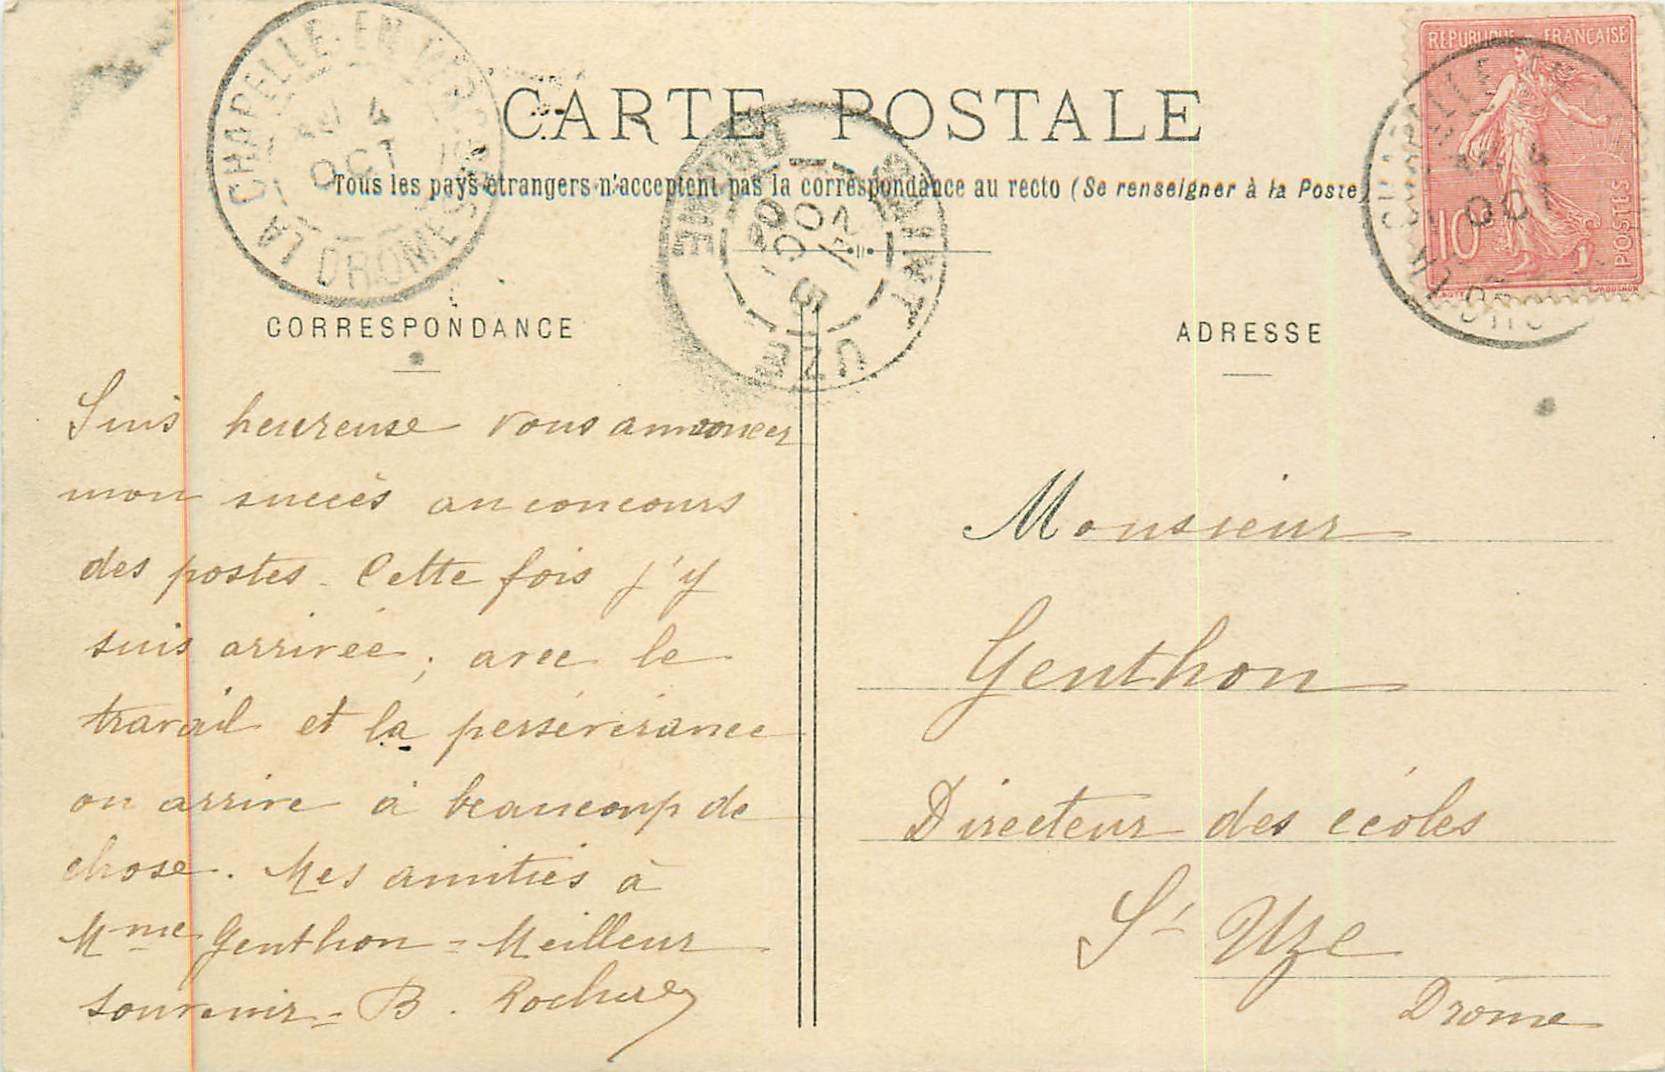 CARTE POSTALE
Tous les pays étrangers n'acceptent pas la correspondance au recto (Se renseigner à la Poste)
RÉPUBLIQUE FRANÇAISE
10
POSTES
LA CHAPELLE-EN-VERCORS
4
OCT
DROME
SAINT UZE
DROME
5
OCT
CORRESPONDANCE
Suis heureuse vous annoncer
mon succès au concours
des postes. Cette fois j'y
suis arrivée, avec le
travail et la persévérance
on arrive à beaucoup de
chose. Mes amitiés à
Mme Genthon - Meilleur
souvenir - B.
ADRESSE
Monsieur
Genthon
Directeur des écoles
St Uze
Drôme